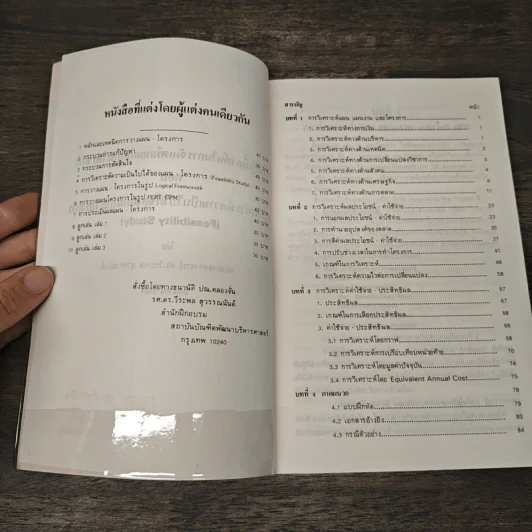 หนังสือที่แต่งโดยผู้แต่งคนเดียวกัน
1 หลักและเทคนิคการวางแผน - โครงการ 40 บาท
2 กระบวนการแก้ปัญหา บาท
3 กระบวนการตัดสินใจ บาท
4 การวิเคราะห์ความเป็นไปได้ของแผน - โครงการ (Feasibility Study) บาท
5 การวางแผน - โครงการในรูป Logical Framework บาท
6 การวางแผน - โครงการในรูป PERT CPM บาท
7 การประเมินผลแผน - โครงการ 40 บาท
8 ลูกเล่น เล่ม 1 30 บาท
9 ลูกเล่น เล่ม 2 30 บาท
10 ลูกเล่น เล่ม 3 30 บาท
สั่งซื้อโดยทางธนาณัติ ปณ.คลองจั่น
รศ.ดร.วีระพล สุวรรณนันต์
สำนักฝึกอบรม
สถาบันบัณฑิตพัฒนาบริหารศาสตร์
กรุงเทพ 10240
สารบัญ
หน้า
บทที่ 1 การวิเคราะห์แผน แผนงาน และโครงการ 1
1. การวิเคราะห์ทางการเงิน 1
2. การวิเคราะห์ทางด้านบริหาร
3. การวิเคราะห์ทางด้านเทคนิค
4. การวิเคราะห์ทางด้านการเปลี่ยนแปลงวิชาการ
5. การวิเคราะห์ทางด้านสังคม
6. การวิเคราะห์ทางด้านเศรษฐกิจ
7. การวิเคราะห์ทางด้านการตลาด
บทที่ 2 การวิเคราะห์ผลประโยชน์ - ค่าใช้จ่าย 23
1. การแยกผลประโยชน์ - ค่าใช้จ่าย 23
2. การทำนายอุปสงค์ของตลาด
3. การตีค่าผลประโยชน์ - ค่าใช้จ่าย 27
4. การปรับช่วงเวลาในการทำโครงการ
5. เกณฑ์ในการวิเคราะห์
6. การวิเคราะห์ความไวต่อการเปลี่ยนแปลง
บทที่ 3 การวิเคราะห์ค่าใช้จ่าย - ประสิทธิผล 67
1. ประสิทธิผล
2. เกณฑ์ในการเลือกประสิทธิผล 68
3. ค่าใช้จ่าย - ประสิทธิผล
3.1 การวิเคราะห์โดยกราฟ
3.2 การวิเคราะห์การเปรียบเทียบหน่วยท้าย
3.3 การวิเคราะห์โดยมูลค่าปัจจุบัน 74
3.4 การวิเคราะห์โดย Equivalent Annual Cost 75
บทที่ 4 ภาคผนวก 78
4.1 แบบฝึกหัด
4.2 เอกสารอ้างอิง 83
4.3 กรณีตัวอย่าง 84